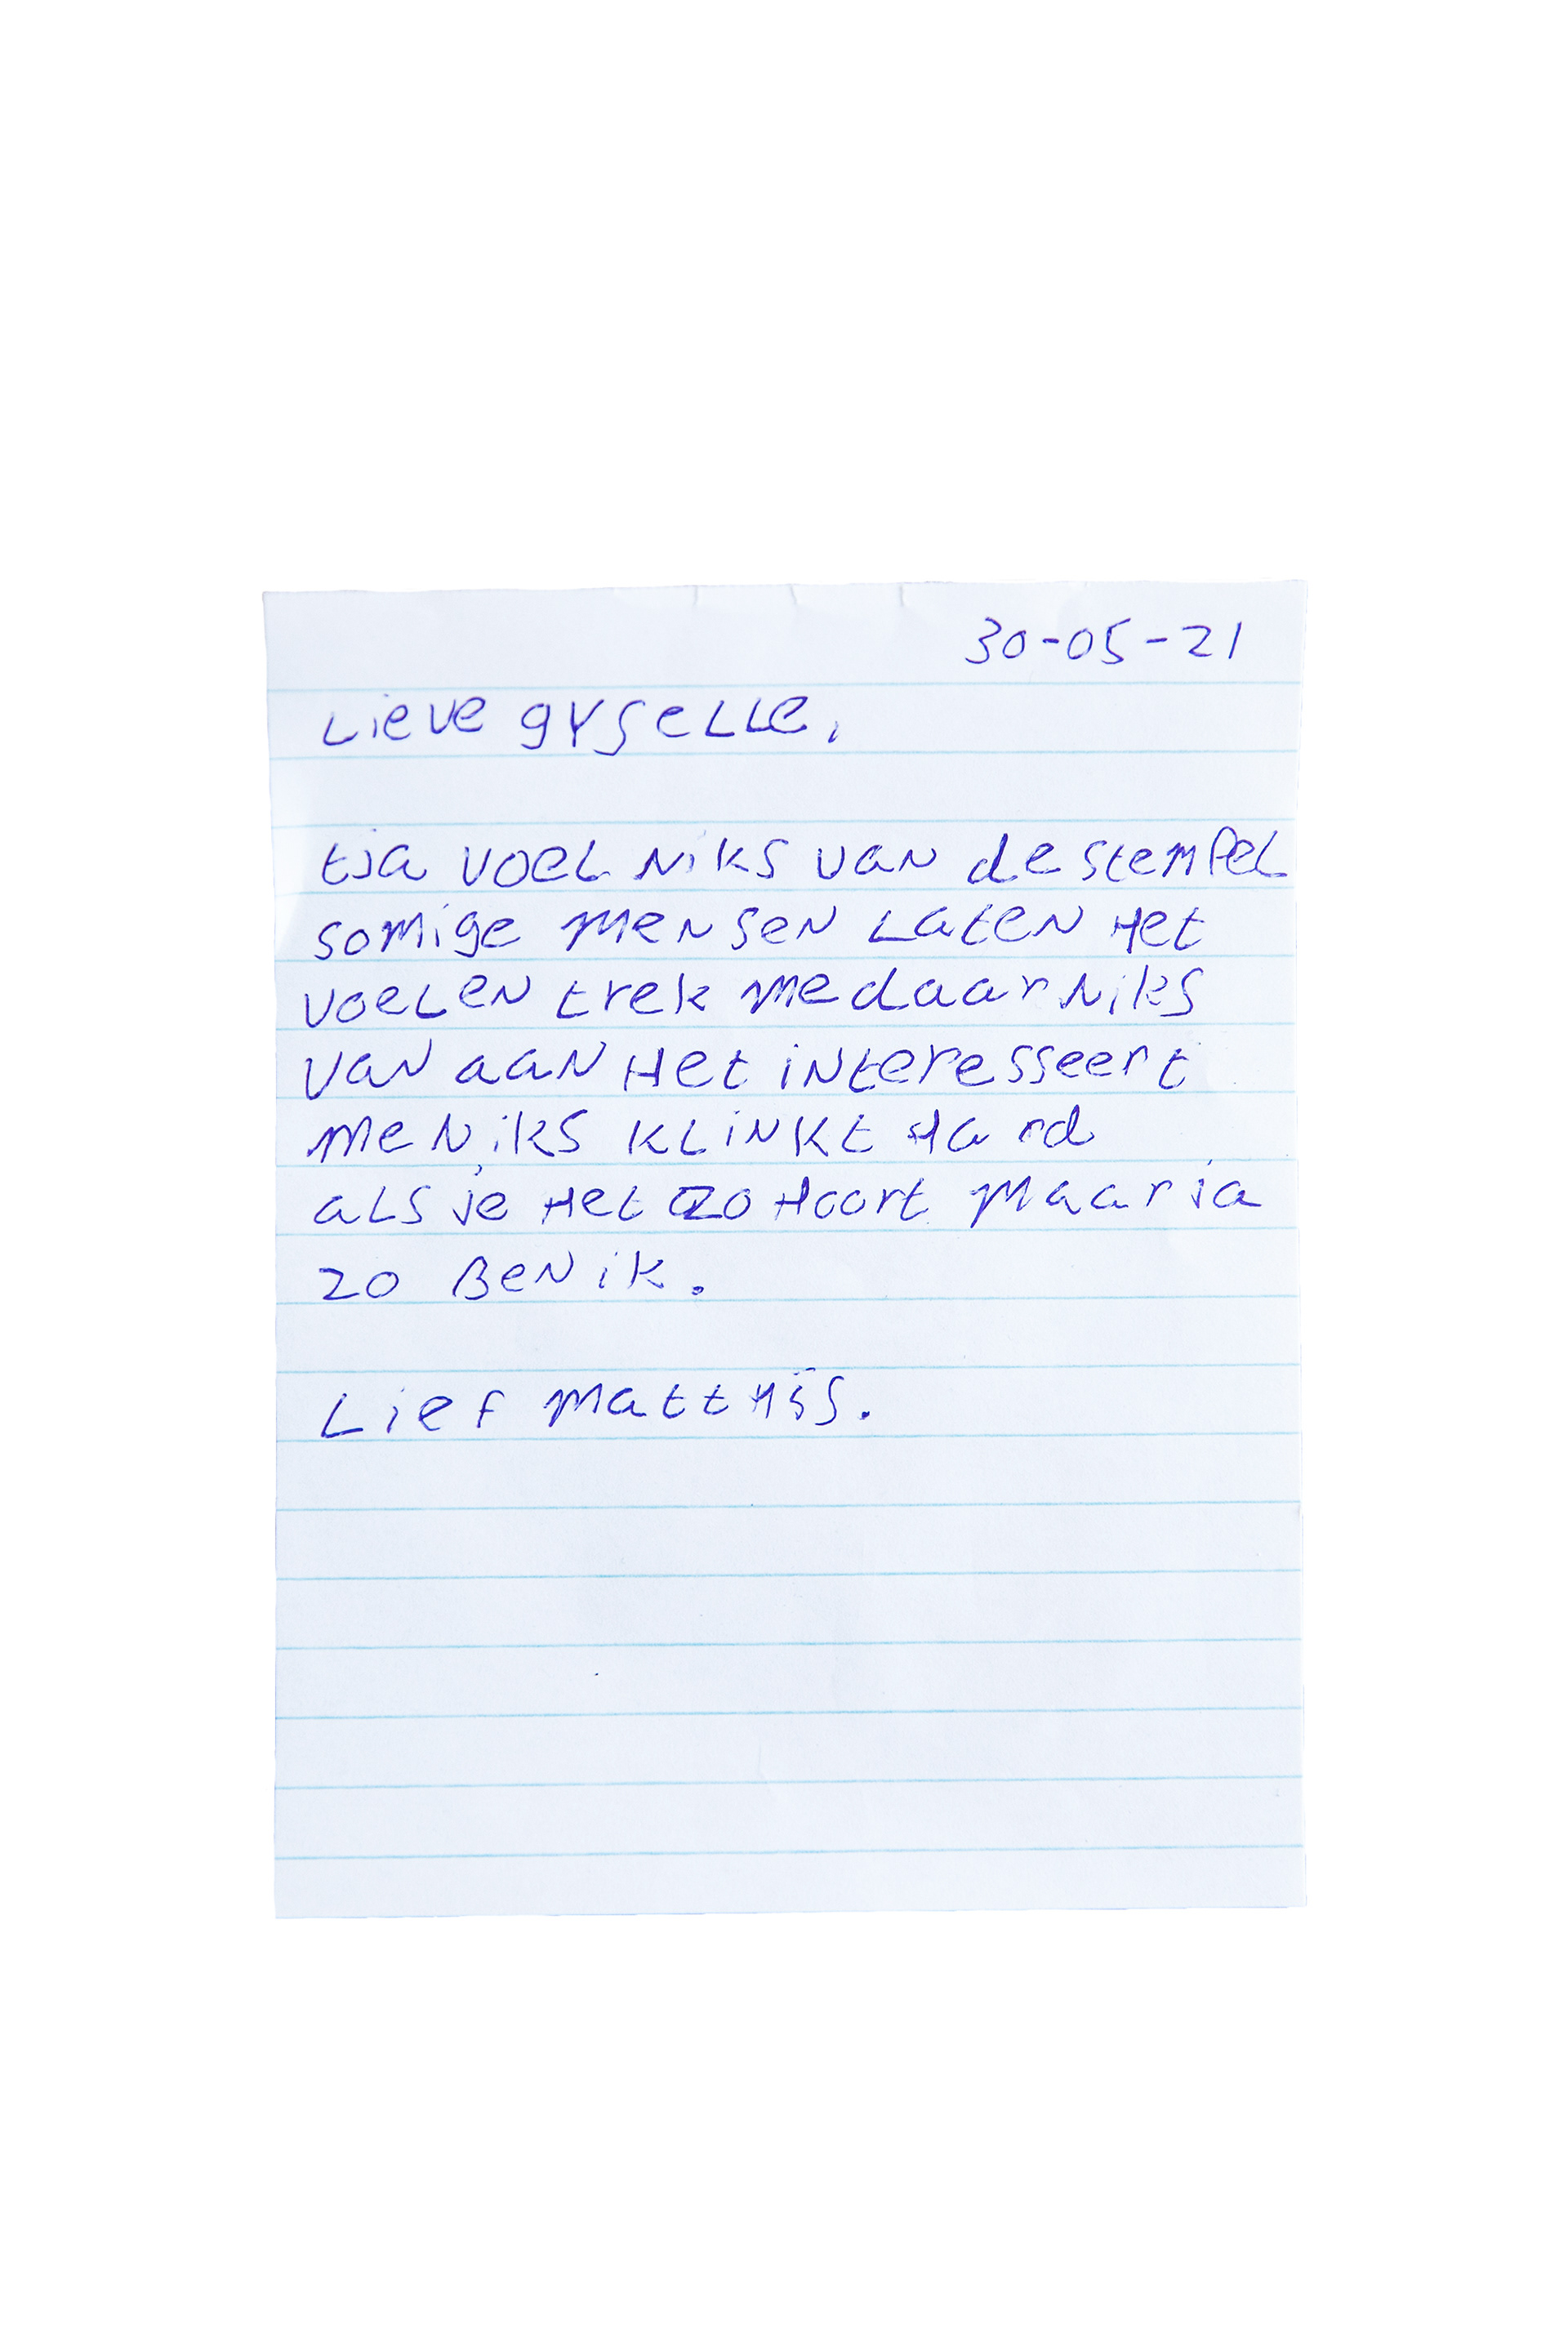 30-05-21
Lieve gyselle,
tja voel niks van de stempel
somige mensen laten het
voelen trek me daar niks
van aan het interesseert
me niks klinkt hard
als je het zo hoort maar ja
zo ben ik.
Lief matthijs.